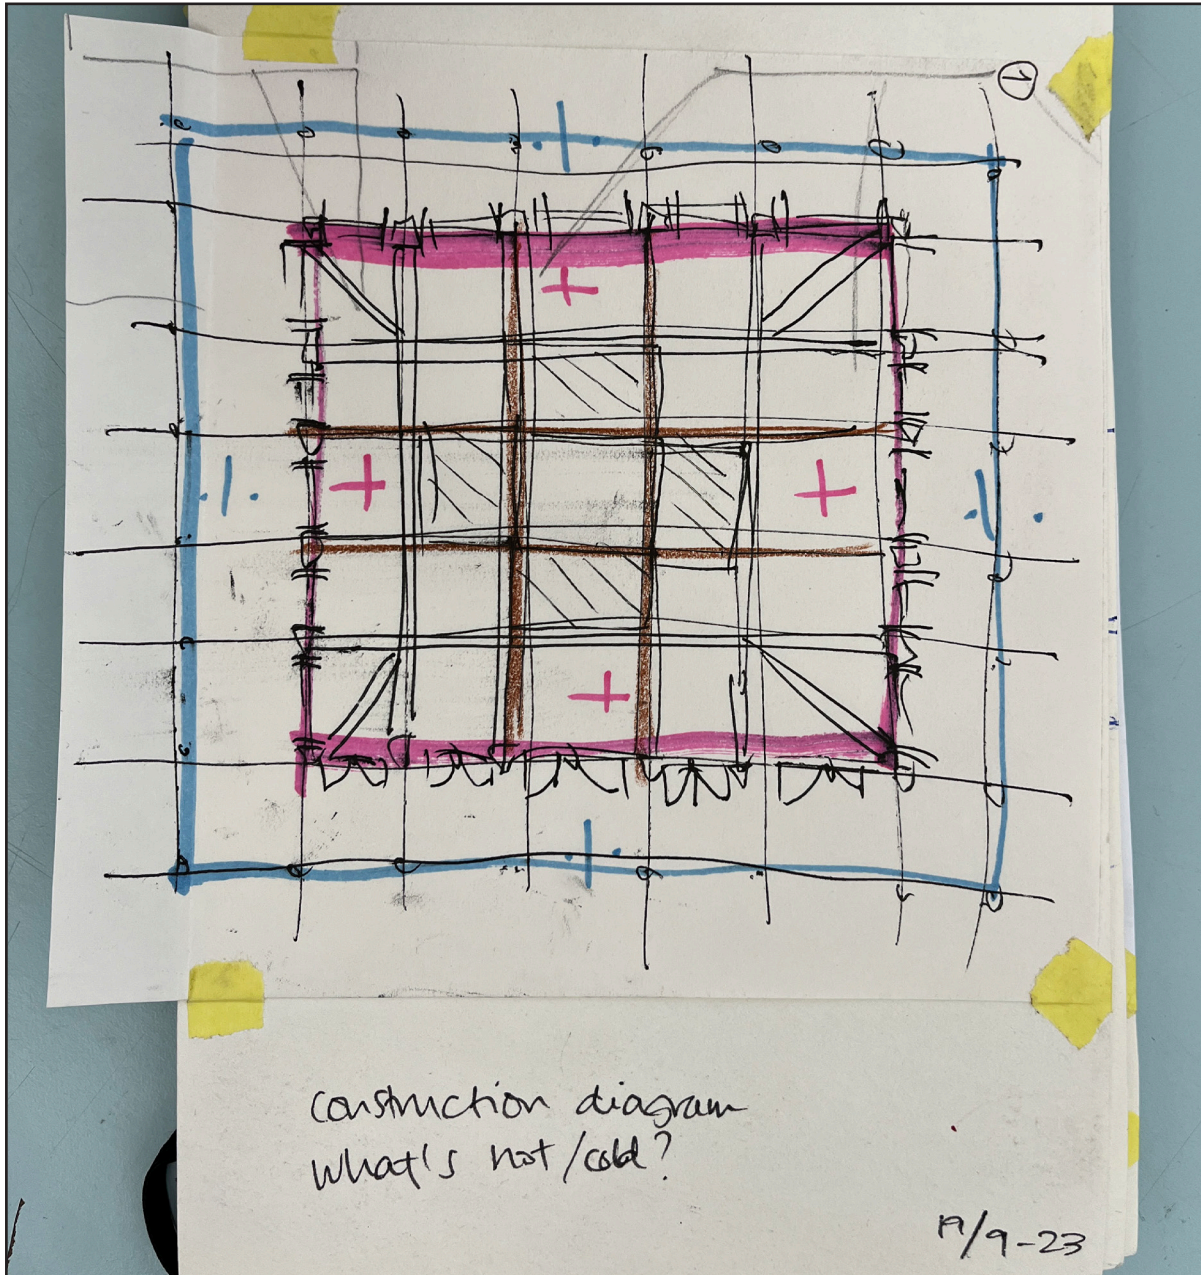 1
construction diagram
what's hot/cold?
19/9-23